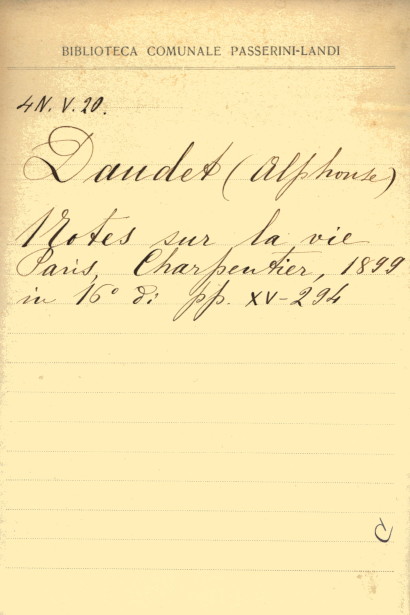 BIBLIOTECA COMUNALE PASSERINI-LANDI
4N. V. 20.
Daudet (Alphonse)
Notes sur la vie
Paris, Charpentier, 1899
in 16° di pp. XV-294